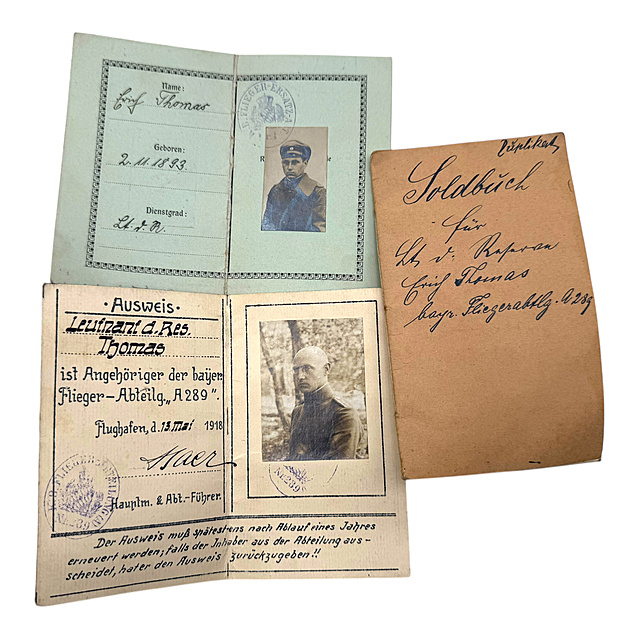 Name:
Erich Thomas
Geboren:
2.11.1893.
Dienstgrad:
Lt. d. R.
K.B. FLIEGER-ERSATZ-A
Duplikat
Soldbuch
für
Lt. d. Reserve
Erich Thomas
bayr. Fliegerabtlg. A 289
·AUSWEIS·
Leutnant d. Res.
Thomas
ist Angehöriger der bayer.
Flieger-Abteilg. „A 289".
Flughafen, d. 13. Mai 1918
Hauptm. & Abt.-Führer.
Der Ausweis muß spätestens nach Ablauf eines Jahres
erneuert werden; falls der Inhaber aus der Abteilung aus-
scheidet, hat er den Ausweis zurückzugeben!!